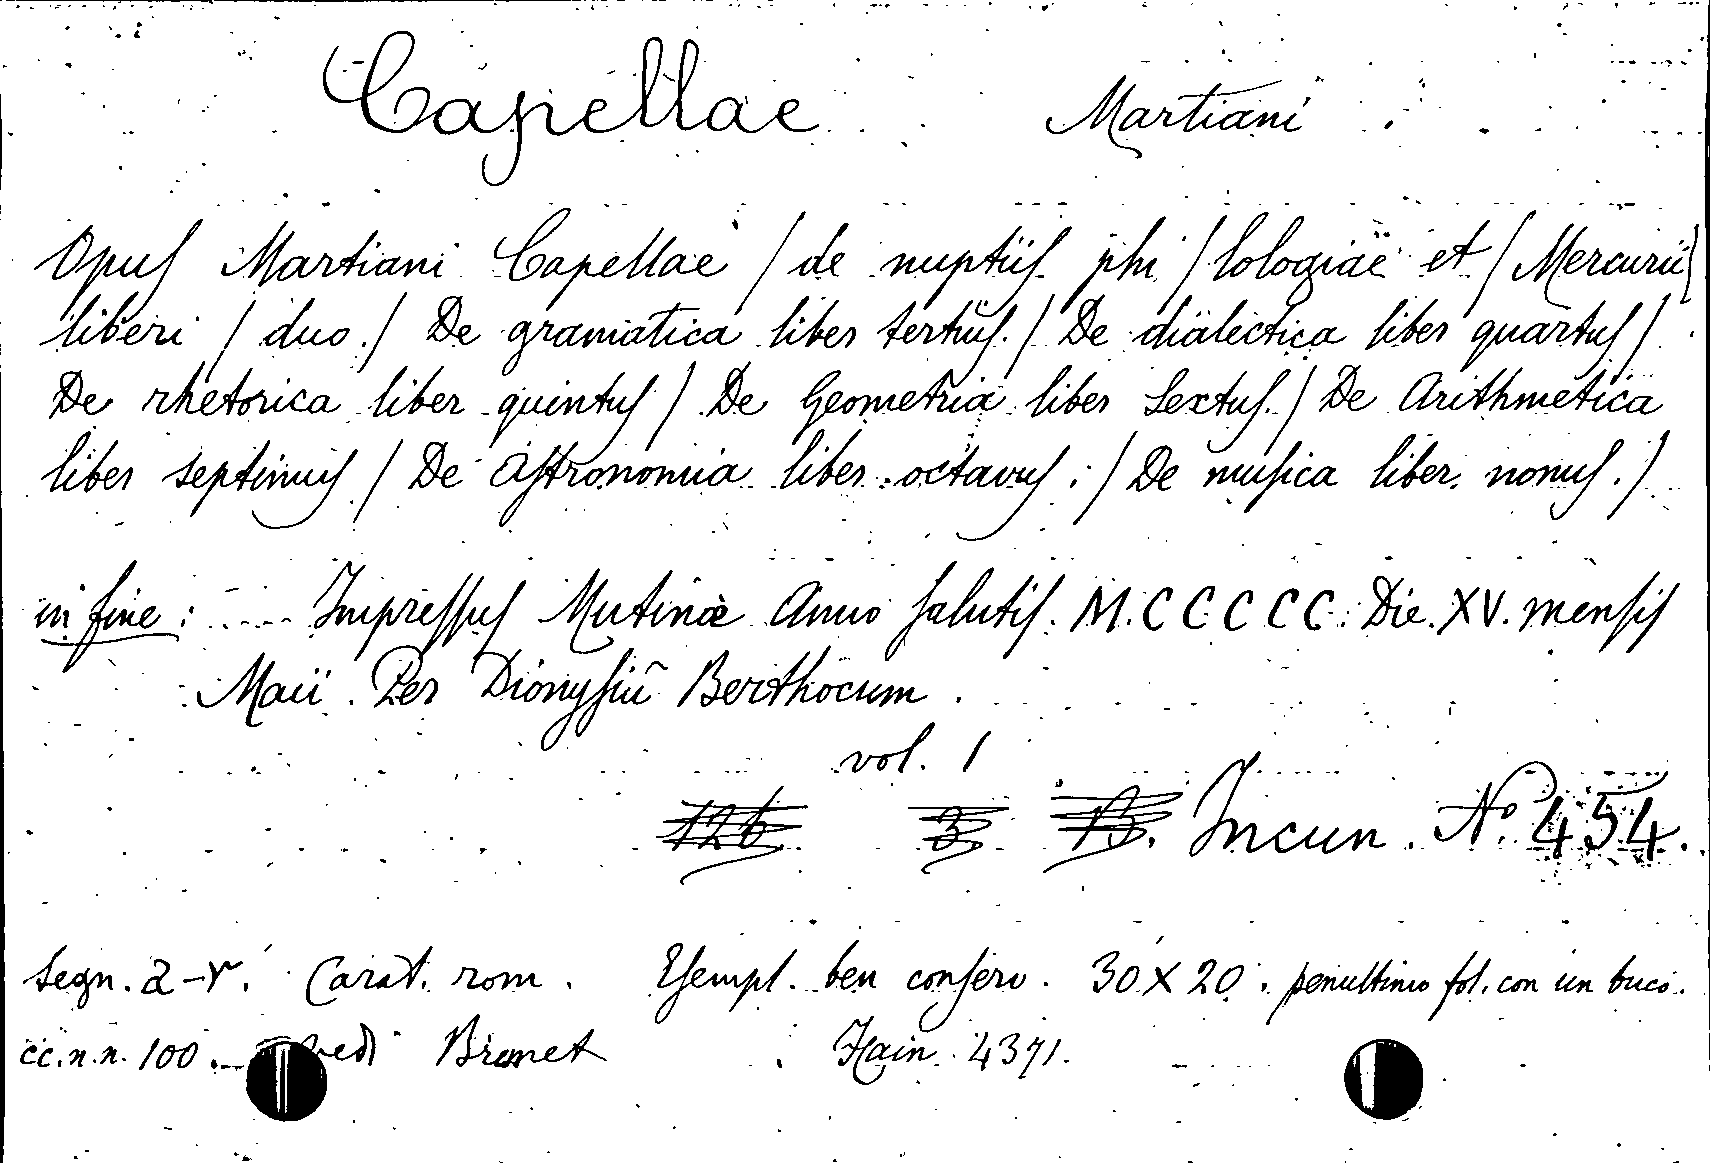 Capellae Martiani
Opuſ Martiani Capellae / de nuptiiſ phi / lologiae et / Mercurii /
liberi / duo. / De gramatica liber tertiuſ. / De dialectica liber quartuſ /
De rhetorica liber quintuſ / De Geometria liber Sextuſ. / De Arithmetica
liber septimuſ / De Aſtronomia liber octavuſ. / De muſica liber nonuſ. /
in fine: ..... Impreſſuſ Mutinæ Anno ſalutiſ. M.CCCCC. Die. XV. menſiſ
Maii. Per Dionyſiū Berthocum.
vol. 1
126 3 13. Incun. Nº 454.
segn. a-r. Carat. rom. Eſempl. ben conſerv. 30 X 20. penultimo fol. con un buco.
cc.n.n. 100. vedi Brunet Hain 4371.